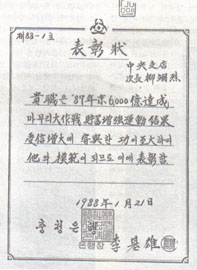 제88-1호
表彰狀
中央支店
次長 柳
貴職은 '87年末 6,000億 達成
마무리 大作戰 貯蓄增强運動 結果
受信增大에 功이 至大하여
他의 模範이 되므로 이에 表彰함
1988年 1月 21日
충청은행
은행장 李基雄